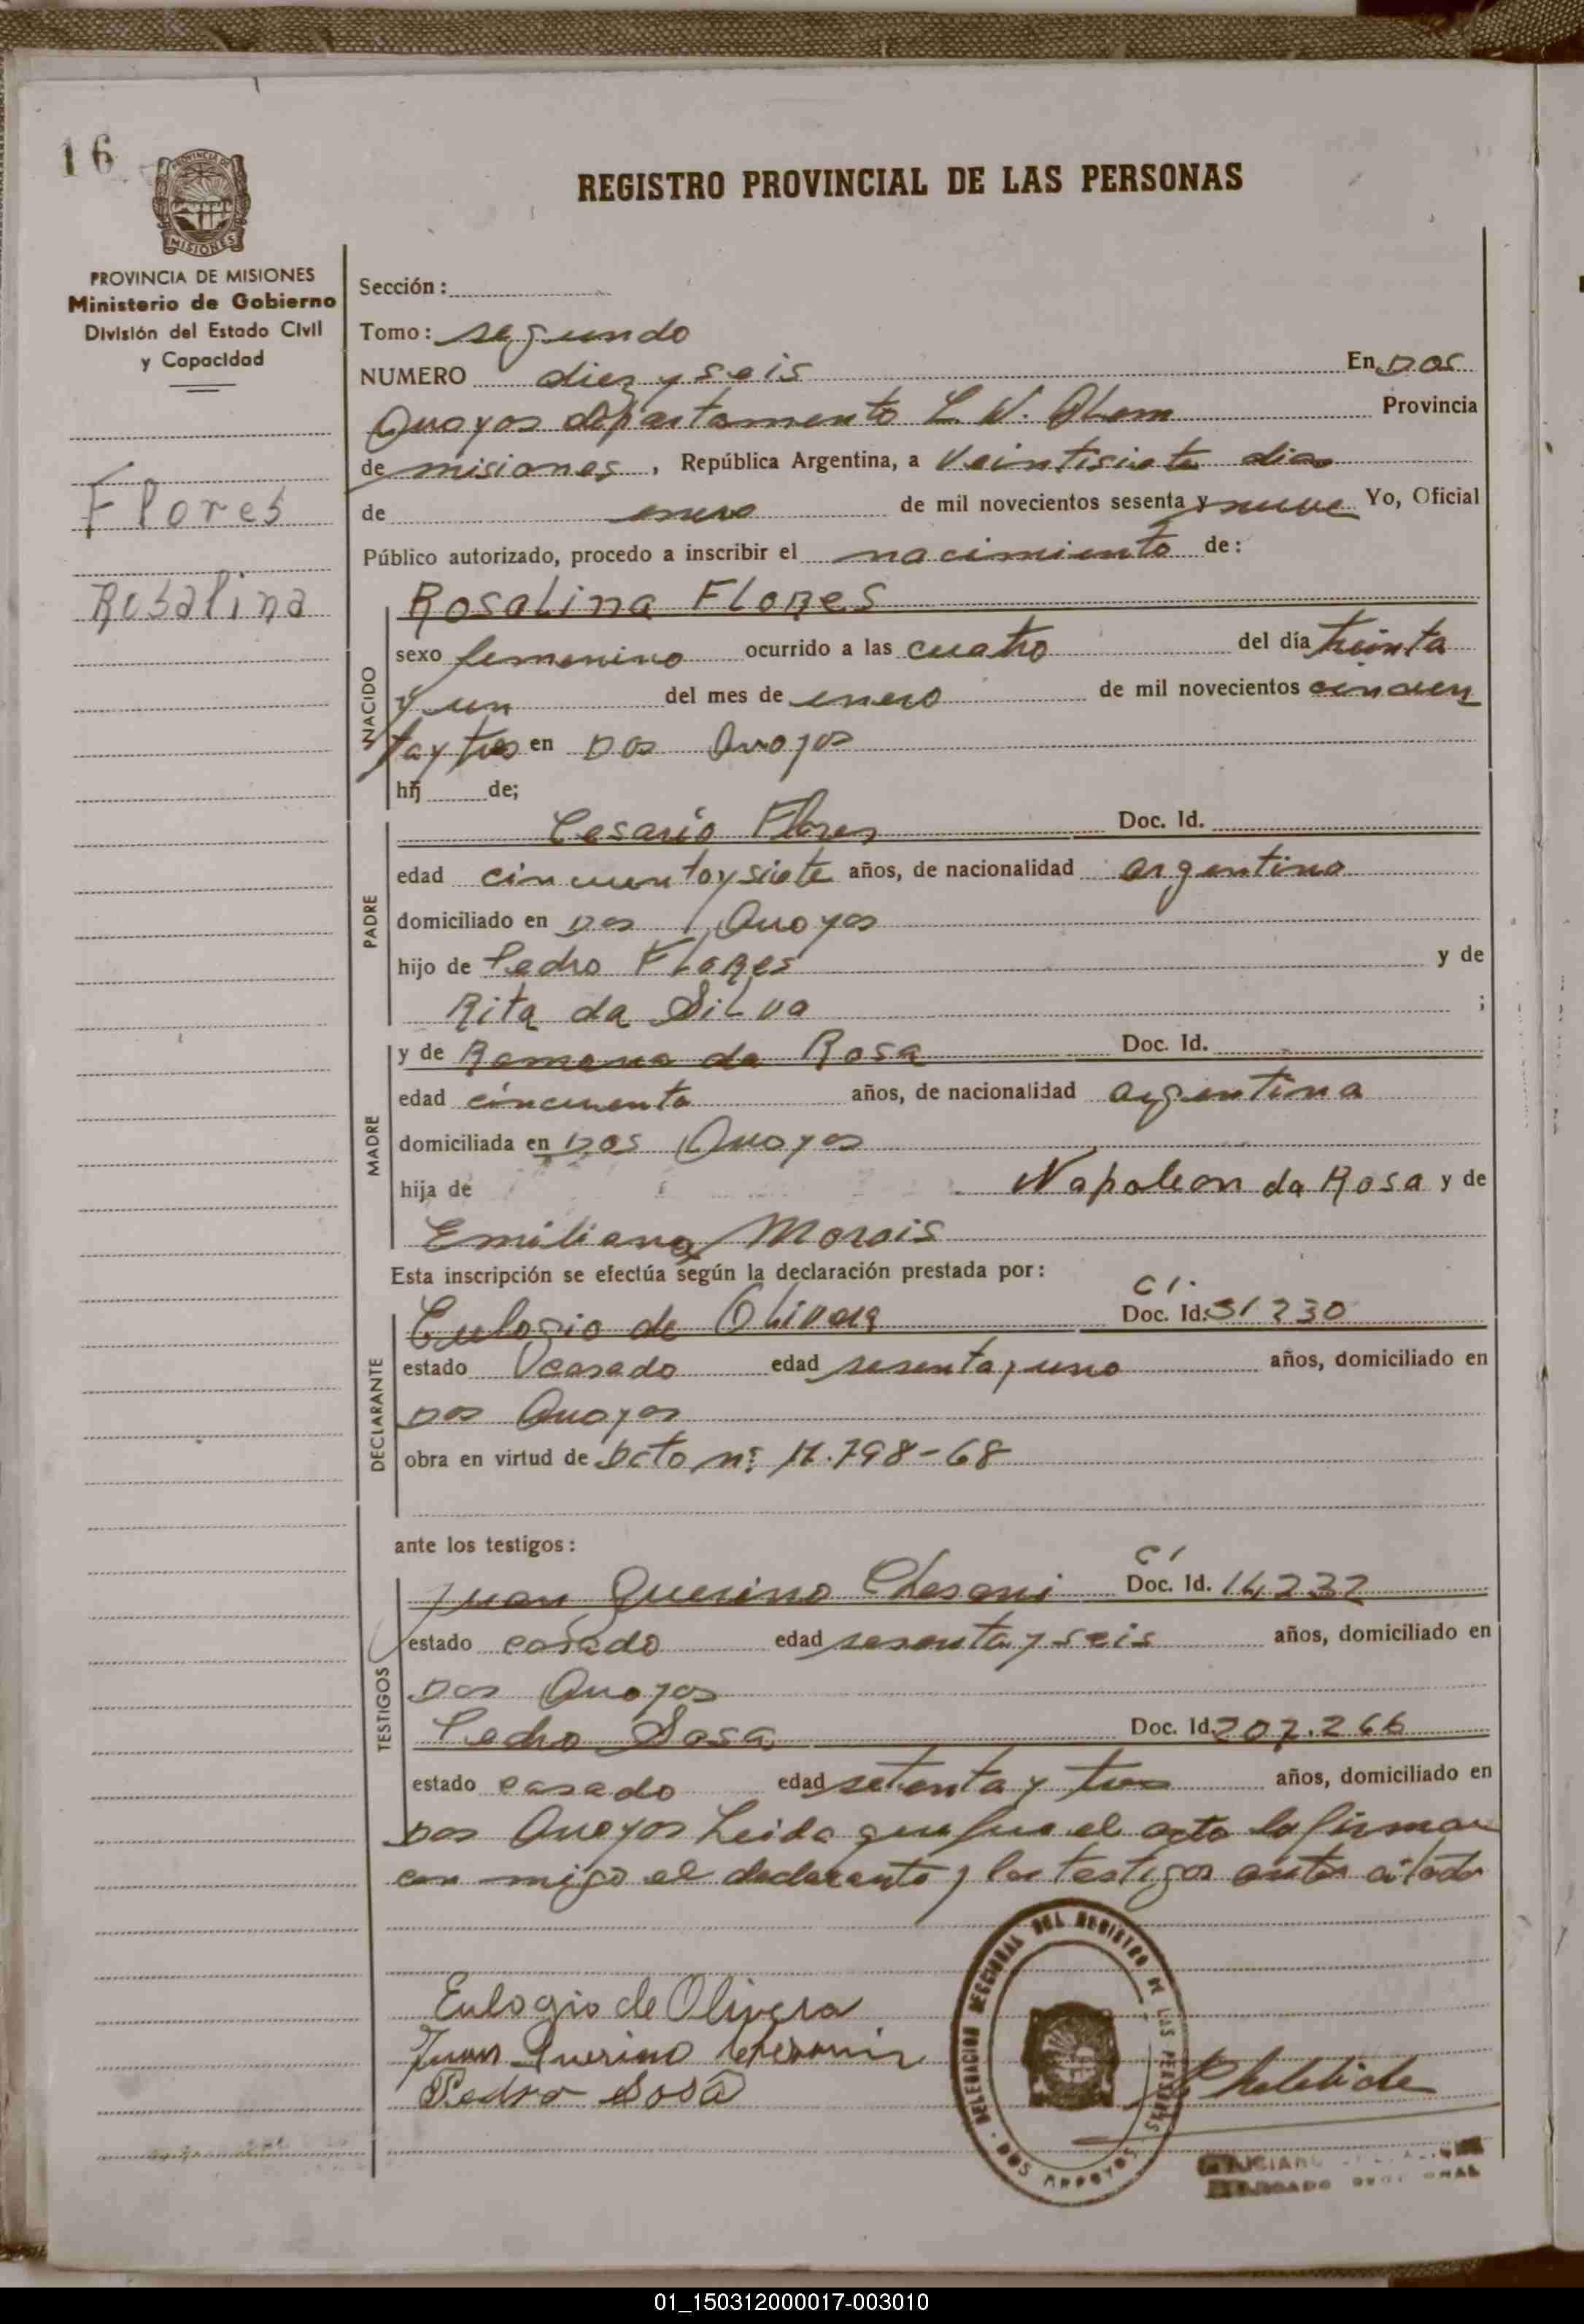 16
PROVINCIA DE
MISIONES
REGISTRO PROVINCIAL DE LAS PERSONAS
PROVINCIA DE MISIONES
Ministerio de Gobierno
División del Estado Civil
y Capacidad
Flores
Rosalina
Sección:
Tomo: segundo
NUMERO diez y seis En Dos
Arroyos departamento L. N. Alem Provincia
de misiones, República Argentina, a Veintisiete dias
de enero de mil novecientos sesenta y nueve Yo, Oficial
Público autorizado, procedo a inscribir el nacimiento de:
Rosalina Flores
NACIDO
sexo femenino ocurrido a las cuatro del día treinta
y un del mes de enero de mil novecientos cincuen
ta y tres en Dos Arroyos
hij de;
PADRE
Cesario Flores Doc. Id.
edad cincuenta y siete años, de nacionalidad argentino
domiciliado en Dos Arroyos
hijo de Pedro Flores y de
Rita da Silva ;
MADRE
y de Ramona da Rosa Doc. Id.
edad cincuenta años, de nacionalidad argentina
domiciliada en Dos Arroyos
hija de Napoleon da Rosa y de
Emiliana Morais
Esta inscripción se efectúa según la declaración prestada por:
DECLARANTE
C I.
Eulogio de Olivera Doc. Id: 31230
estado casado edad sesenta y uno años, domiciliado en
Dos Arroyos
obra en virtud de Dcto nº 17.798-68
ante los testigos:
TESTIGOS
C I
Juan Querino Chesani Doc. Id. 14232
estado casado edad sesenta y seis años, domiciliado en
Dos Arroyos
Pedro Sosa Doc. Id. 207.266
estado casado edad setenta y tres años, domiciliado en
Dos Arroyos Leida que fue el acta la firman
con migo el declarante y los testigos antes citado
Eulogio de Olivera
Juan Querino
Pedro Sosa
DELEGACION SECCIONAL DEL REGISTRO DE LAS PERSONAS
DOS ARROYOS
01_150312000017-003010